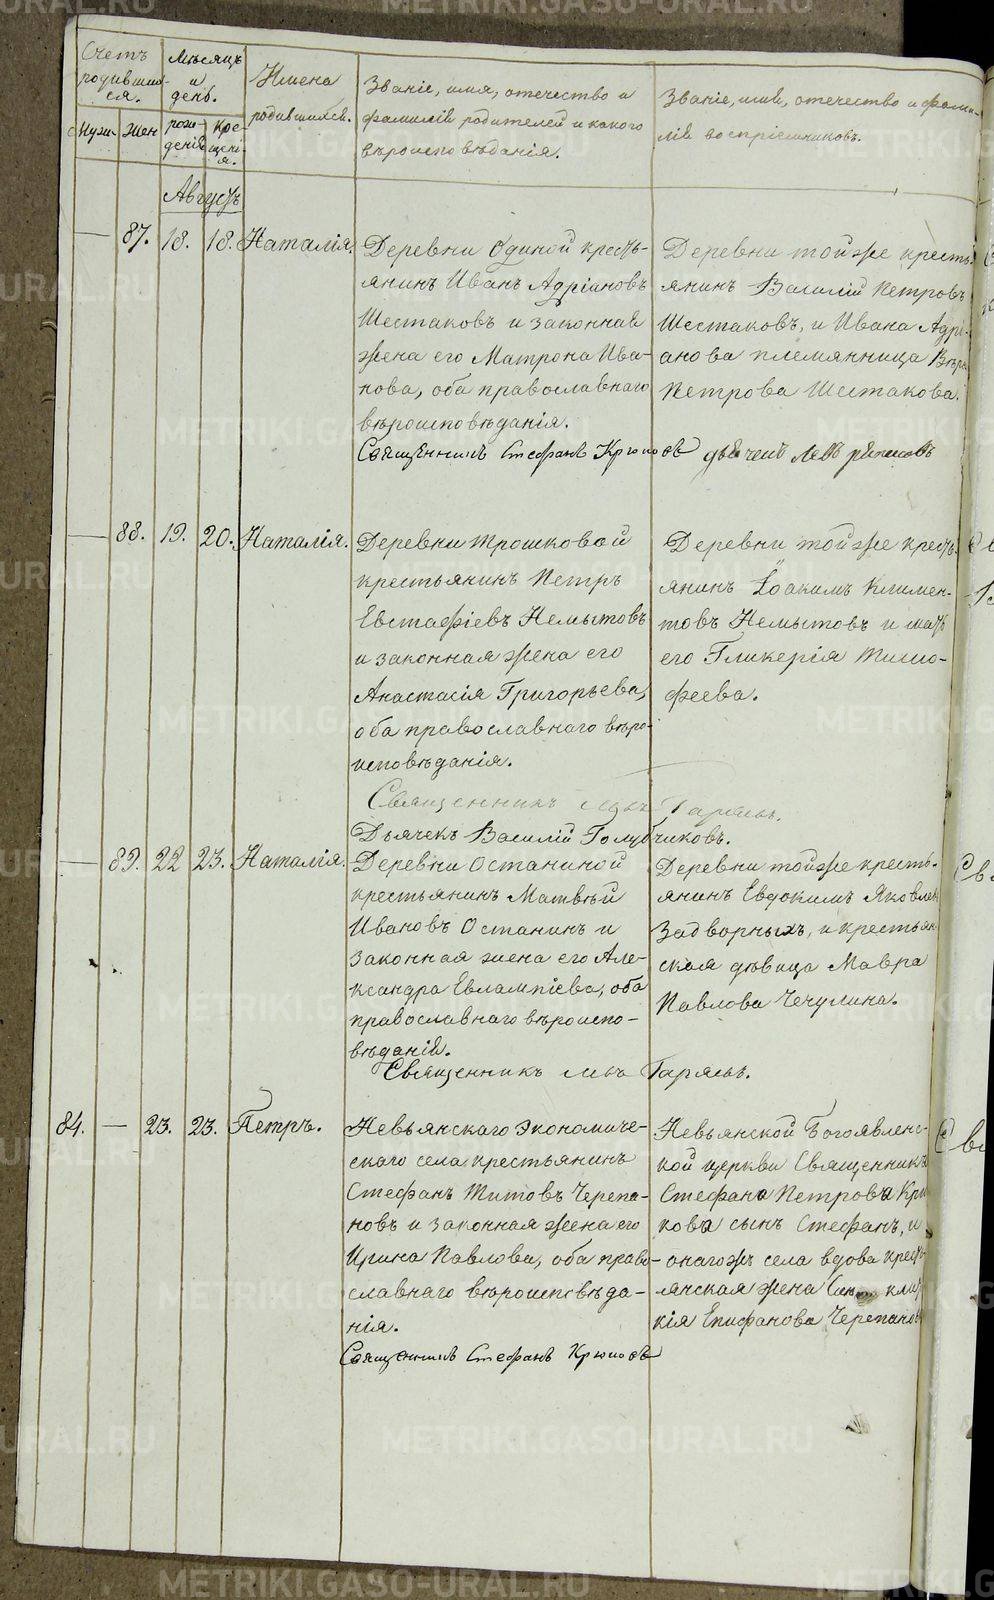 Счетъ родившихся.
Мѣсяцъ и день.
Имена родившихся.
Званіе, имя, отечество и фамилія родителей и какого вѣроисповѣданія.
Званіе, имя, отечество и фамилія воспріемниковъ.
Мужи. Жен рожденія Крещенія.
Августъ
87. 18. 18. Наталія.
Деревни Одиной кресть-
янинъ Иванъ Адріановъ
Шестаковъ и законная
жена его Матрона Ива-
нова, оба православнаго
вѣроисповѣданія.
Деревни той же кресть-
янинъ Василій Петровъ
Шестаковъ, и Ивана Адрі-
анова племянница Вѣра
Петрова Шестакова.
Священникъ Стефанъ Крюковъ
88. 19. 20. Наталія.
Деревни Трошковой
крестьянинъ Петръ
Евстафіевъ Немытовъ
и законная жена его
Анастасія Григорьева,
оба православнаго вѣро-
исповѣданія.
Деревни той же кресть-
янинъ Іоакимъ Климен-
товъ Немытовъ и мать
его Гликерія Тимо-
феева.
Священникъ
Дьячекъ Василій Голубчиковъ.
89. 22 23. Наталія.
Деревни Останиной
крестьянинъ Матвѣй
Ивановъ Останинъ и
законная жена его Але-
ксандра Евлампіева, оба
православнаго вѣроиспо-
вѣданія.
Деревни той же кресть-
янинъ Евдокимъ Яковлевъ
Задворныхъ, и крестьян-
ская дѣвица Мавра
Павлова Чечулина.
Священникъ
84. 23. 23. Петръ.
Невьянскаго Экономиче-
скаго села крестьянинъ
Стефанъ Титовъ Черепа-
новъ и законная жена его
Ирина Павлова, оба право-
славнаго вѣроисповѣда-
нія.
Невьянской Богоявленс-
кой церкви Священникъ
Стефана Петрова Крю
кова сынъ Стефанъ, и
онагожъ села вдова кресть
янская жена
кія Епифанова Черепанов
Священникъ Стефанъ Крюковъ
METRIKI.GASO-URAL.RU